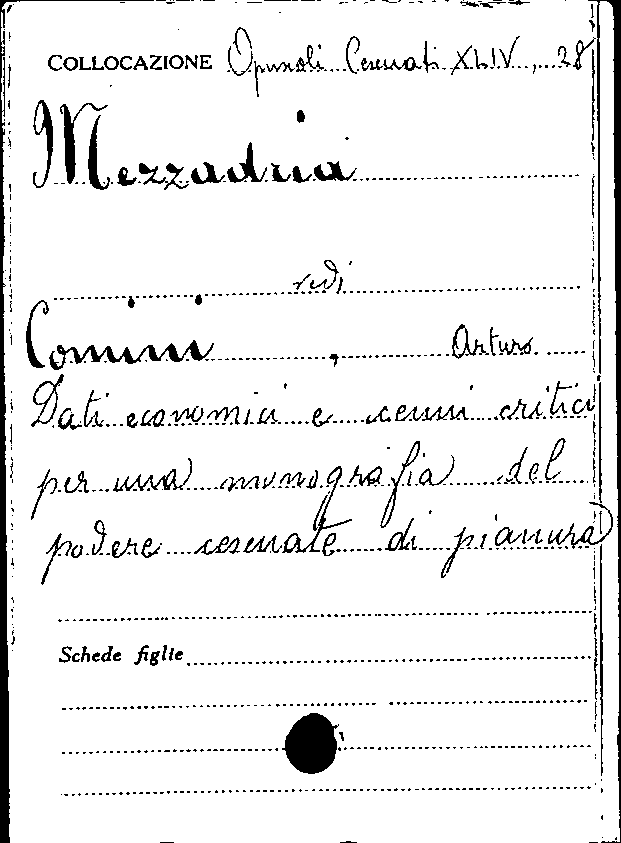 COLLOCAZIONE Opuscoli Cesenati XLIV, 28
Mezzadria
vedi
Comini, Arturo
Dati economici e cenni critici
per una monografia del
podere cesenate di pianura
Schede figlie